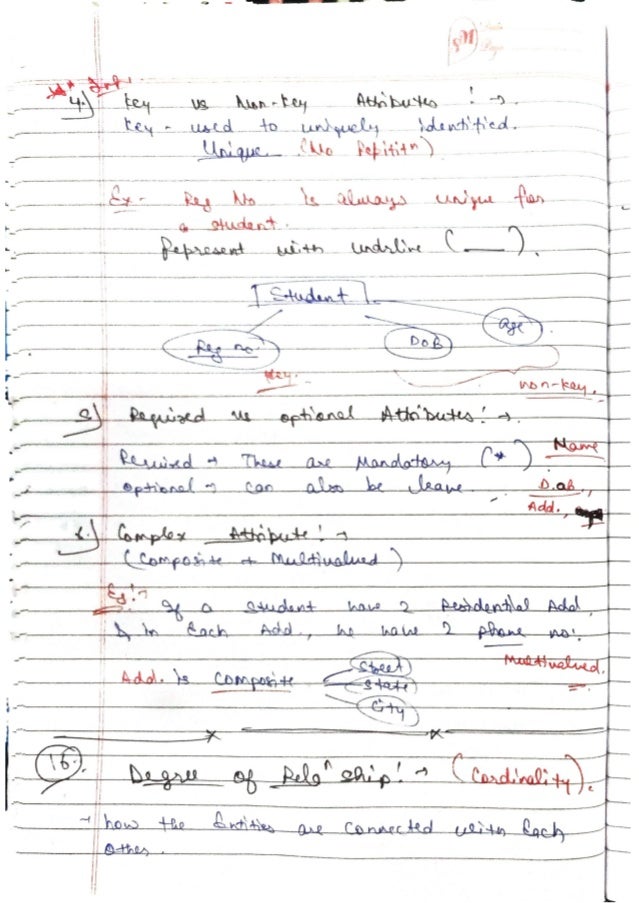 Imp!
4.) Key vs Non-Key Attributes !→.
Key - used to uniquely identified.
Unique (No Repititn)
Ex - Reg No is always unique for
a student.
Represent with undrline ( ___ ).
Student
Reg no.
DOB
Age
Key.
non-key.
5) Required vs optional Attributes!→.
Required → These are Mandatory (*)
Name
optional → can also be leave.
D.oB.,
Add.,
6.) Complex Attribute!→
(Composite + Multivalued)
Eg!→ If a student have 2 Residential Add,
& in Each Add., he have 2 phone no.
Multivalued.
Add. is composite
Street
State
City
16. Degree of Relanship!→ (Cardinality).
→ how the Entities are connected with Each
Other.